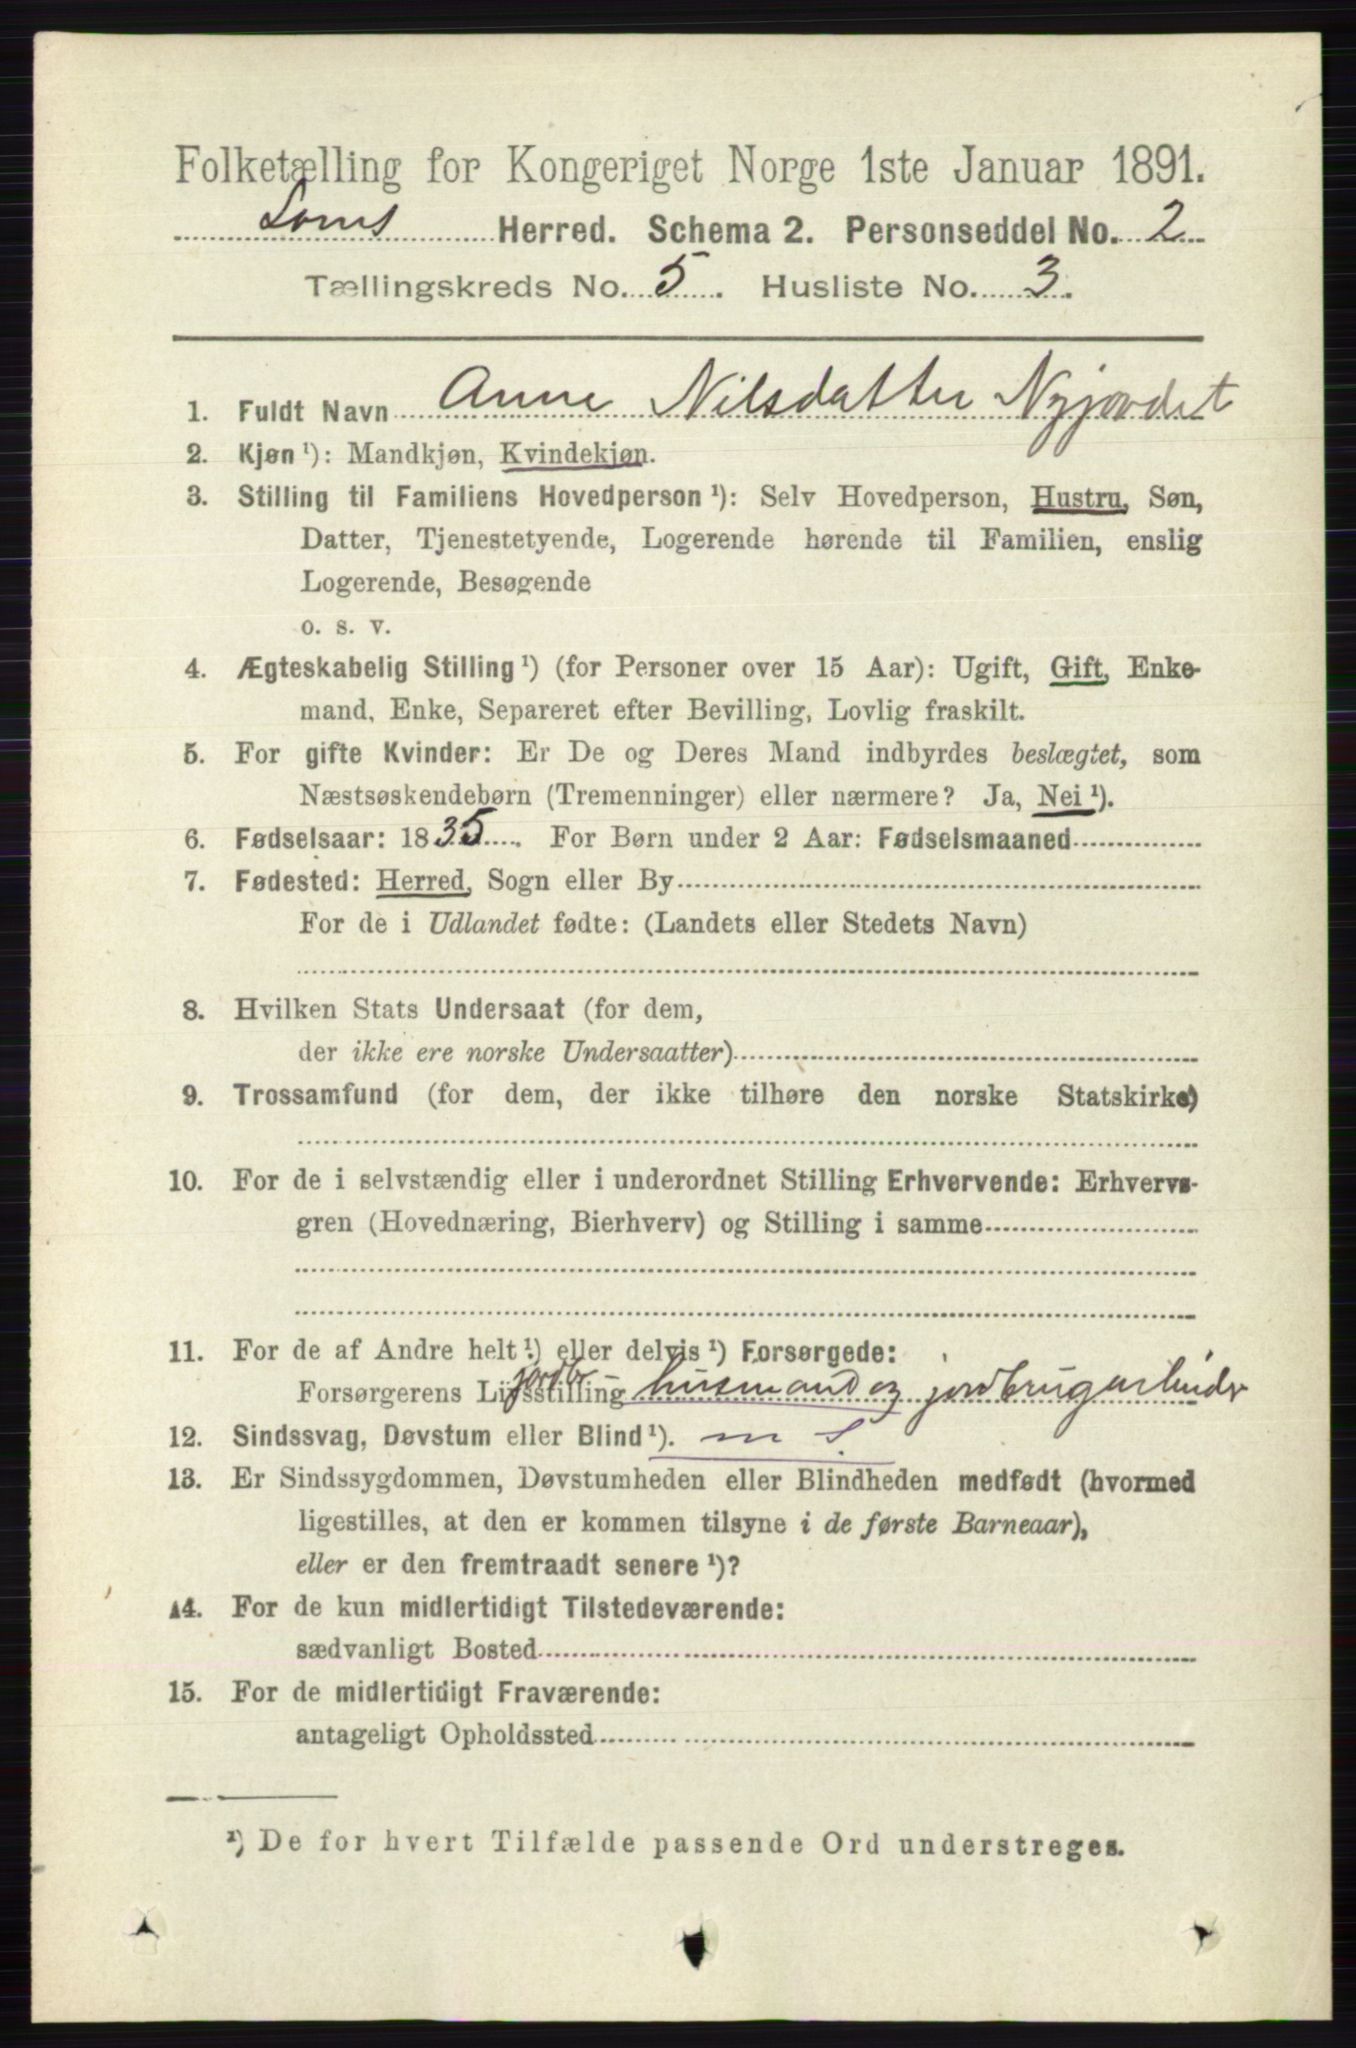 Folketælling for Kongeriget Norge 1ste Januar 1891.
Loms Herred. Schema 2. Personseddel No. 2
Tællingskreds No. 5. Husliste No. 3.
1. Fuldt Navn Anne Nilsdatter Nyjordet
2. Kjøn ¹): Mandkjøn, Kvindekjøn.
3. Stilling til Familiens Hovedperson ¹): Selv Hovedperson, Hustru, Søn,
Datter, Tjenestetyende, Logerende hørende til Familien, enslig
Logerende, Besøgende
o. s. v.
4. Ægteskabelig Stilling ¹) (for Personer over 15 Aar): Ugift, Gift, Enke-
mand, Enke, Separeret efter Bevilling, Lovlig fraskilt.
5. For gifte Kvinder: Er De og Deres Mand indbyrdes beslægtet, som
Næstsøskendebørn (Tremenninger) eller nærmere? Ja, Nei ¹).
6. Fødselsaar: 1835. For Børn under 2 Aar: Fødselsmaaned
7. Fødested: Herred, Sogn eller By
For de i Udlandet fødte: (Landets eller Stedets Navn)
8. Hvilken Stats Undersaat (for dem,
der ikke ere norske Undersaatter)
9. Trossamfund (for dem, der ikke tilhøre den norske Statskirke)
10. For de i selvstændig eller i underordnet Stilling Erhvervende: Erhvervs-
gren (Hovednæring, Bierhverv) og Stilling i samme
11. For de af Andre helt ¹) eller delvis ¹) Forsørgede:
jordbr
Forsørgerens Livsstilling husmand og jordbrugarbeider
12. Sindssvag, Døvstum eller Blind ¹). m s
13. Er Sindssygdommen, Døvstumheden eller Blindheden medfødt (hvormed
ligestilles, at den er kommen tilsyne i de første Barneaar),
eller er den fremtraadt senere ¹)?
14. For de kun midlertidigt Tilstedeværende:
sædvanligt Bosted
15. For de midlertidigt Fraværende:
antageligt Opholdssted
¹) De for hvert Tilfælde passende Ord understreges.